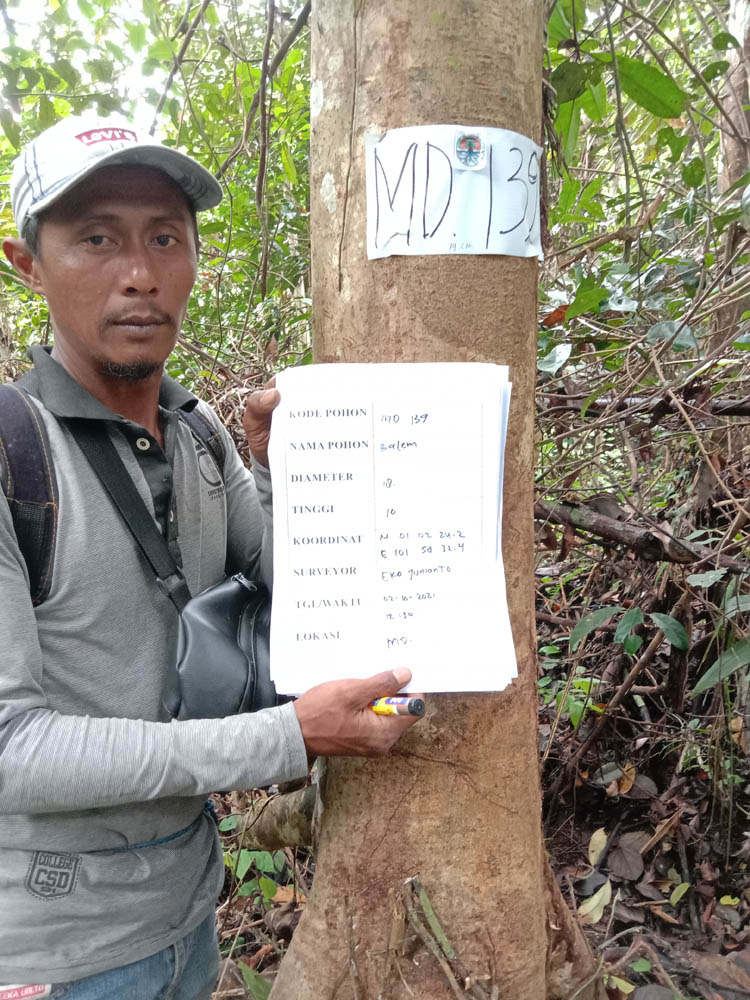 LEVI'S
MD. 139
19 cm
KODE POHON MD 139
NAMA POHON Balem
DIAMETER 18.
TINGGI 10
KOORDINAT N 01 02 24.2
E 101 50 32.4
SURVEYOR EKO Junianto
TGL/WAKTU 02-10-2021
12:30
LOKASI MD.
COLLEGE
CSD
91